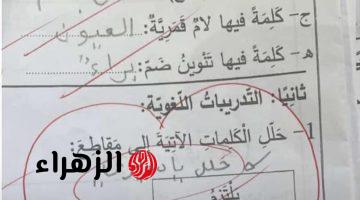 ج- كَلِمَةً فيها لامٌ قَمَرِيَّةٌ: العيون
هـ- كَلِمَةً فيها تَنْوينُ ضَمٍّ: براءٌ
ثانِيًا: التَّدريباتُ اللُّغَوِيَّةُ:
1- حَلِّلِ الْكَلِماتِ الآتِيَةَ إِلى مَقاطِعَ:
الزهراء
يَلْتَزِمُ